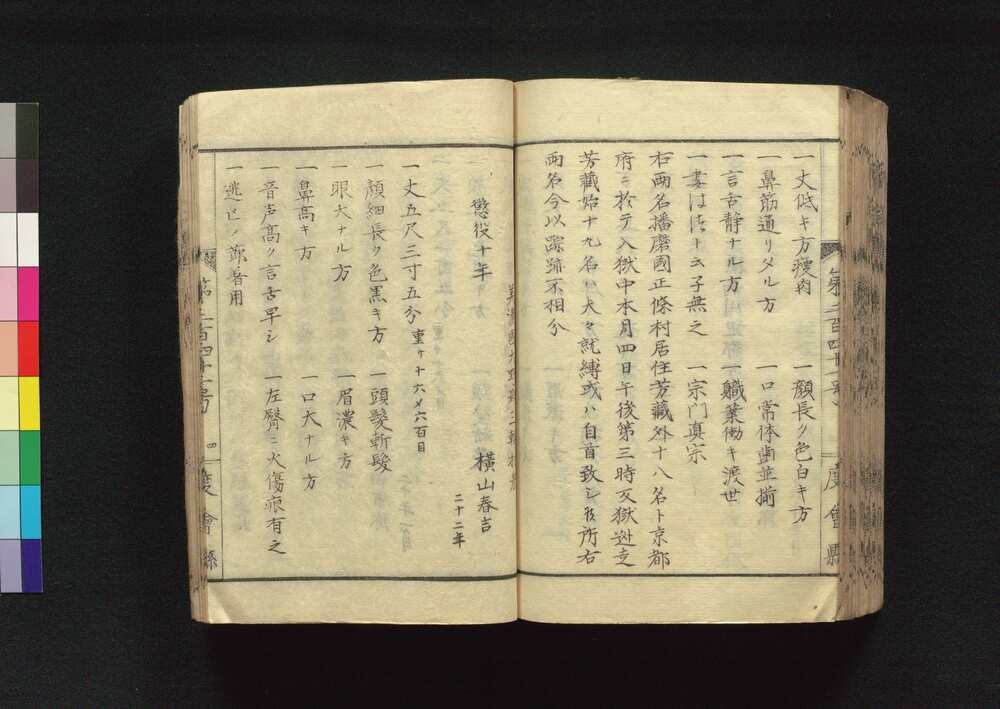 一丈低キ方痩肉　一顔長ク色白キ方
一鼻筋通リタル方　一口常体歯並揃
一言舌静ナル方　一職業働キ渡世
一妻ははつト云子無之　一宗門真宗
右両名播磨國正條村居住芳藏外十八名ト京都
府ニ於テ入獄中本月四日午後第三時又獄逃走
芳藏始十九名ハ大々就縛或ハ自首致シ候所右
両名今以踪跡不相分
懲役十年
横山春吉
二十二年
一丈五尺三寸五分 重サ十六メ六百目
一顔細長ク色黒キ方　一頭髪斬髪
一眼大ナル方　一眉濃キ方
一鼻高キ方　一口大ナル方
一音声高ク言舌早シ　一左臂ニ火傷痕有之
一逃亡ノ節着用
四
度會縣